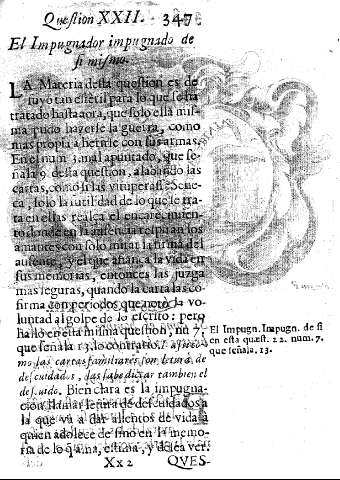 Question XXII. 347
El Impugnador impugnado de
si mismo.
LA Materia desta question es de
suyo tan esteril para lo que se ha
tratado hasta aora, que solo ella mis-
ma pudo hazerse la guerra, como
mas propia a herirse con sus armas.
En el num. 3. mal apuntado, que se-
ñala 9. desta question, alabando las
cartas, como si las vituperasse Sene-
ca, solo la utilidad de lo que se tra-
ta en ellas realça el encarecimien-
to donde en la ausencia respiran los
amantes con solo mirar la firma del
ausente, y el que afiança la vida en
sus memorias, entonces las juzga
mas seguras, quando la carta las co-
firma con periodos que notò la vo-
luntad al golpe de lo escrito: pero
hallo en esta misma question, nu. 7.
que señala 13. lo contrario.
mo las cartas familiares son letura de
descuidados, las sabe dictar tambien el
descuido. Bien clara es la impugna-
cion llamar letura de descuidados a
la que và a dar alientos de vida a
quien adolece de fino en la memo-
ria de lo q ama, estima, y desea ver.
Xx2 QVES-
El Impugn. Impugn. de si
en esta quest. 22. num. 7.
que señala, 13.